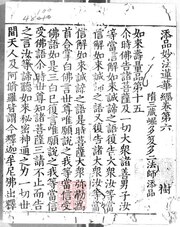 添品妙法蓮華經卷第六
隋崛多笈多二法師添品
樹
如來壽量品第十五
爾時佛告諸菩薩及一切大衆諸善男子汝
等當信解如來誠諦之語復告大衆汝等當
信解如來誠諦之語又復告諸大衆汝等當
信解如來誠諦之語是時菩薩大衆彌勒為
首合掌白佛言世尊唯願說之我等當信受
佛語如是三白已復言唯願說之我等當信
受佛語爾時世尊知諸菩薩三請不止而告
之言汝等諦聽如來祕密神通之力一切世
間天人及阿修羅皆謂今釋迦牟尼佛出釋